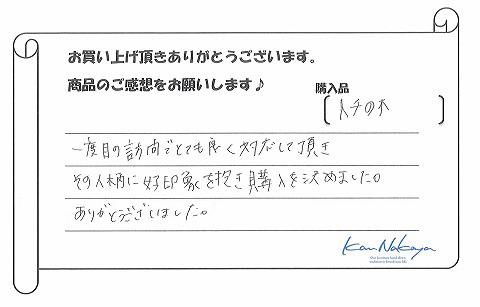 お買い上げ頂きありがとうございます。
商品のご感想をお願いします♪
購入品
イチの木
一度目の訪問でとても良く対応して頂き
その人柄に好印象を抱き購入を決めました。
ありがとうございました。
Kan Nakaya